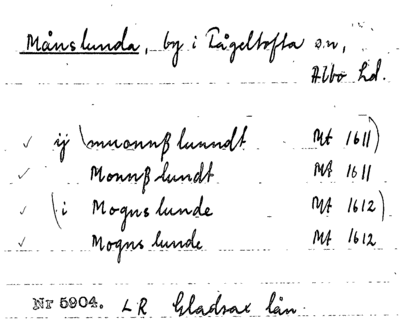 Månslunda, by i Tågeltofta sn,
Albo hd.
✓ ij (muonnß lunndt Mt 1611)
✓ Monnß lundt Mt 1611
✓ (i Mogns lunde Mt 1612)
✓ Mogns lunde Mt 1612
Nr 5904. LR Gladsax län.